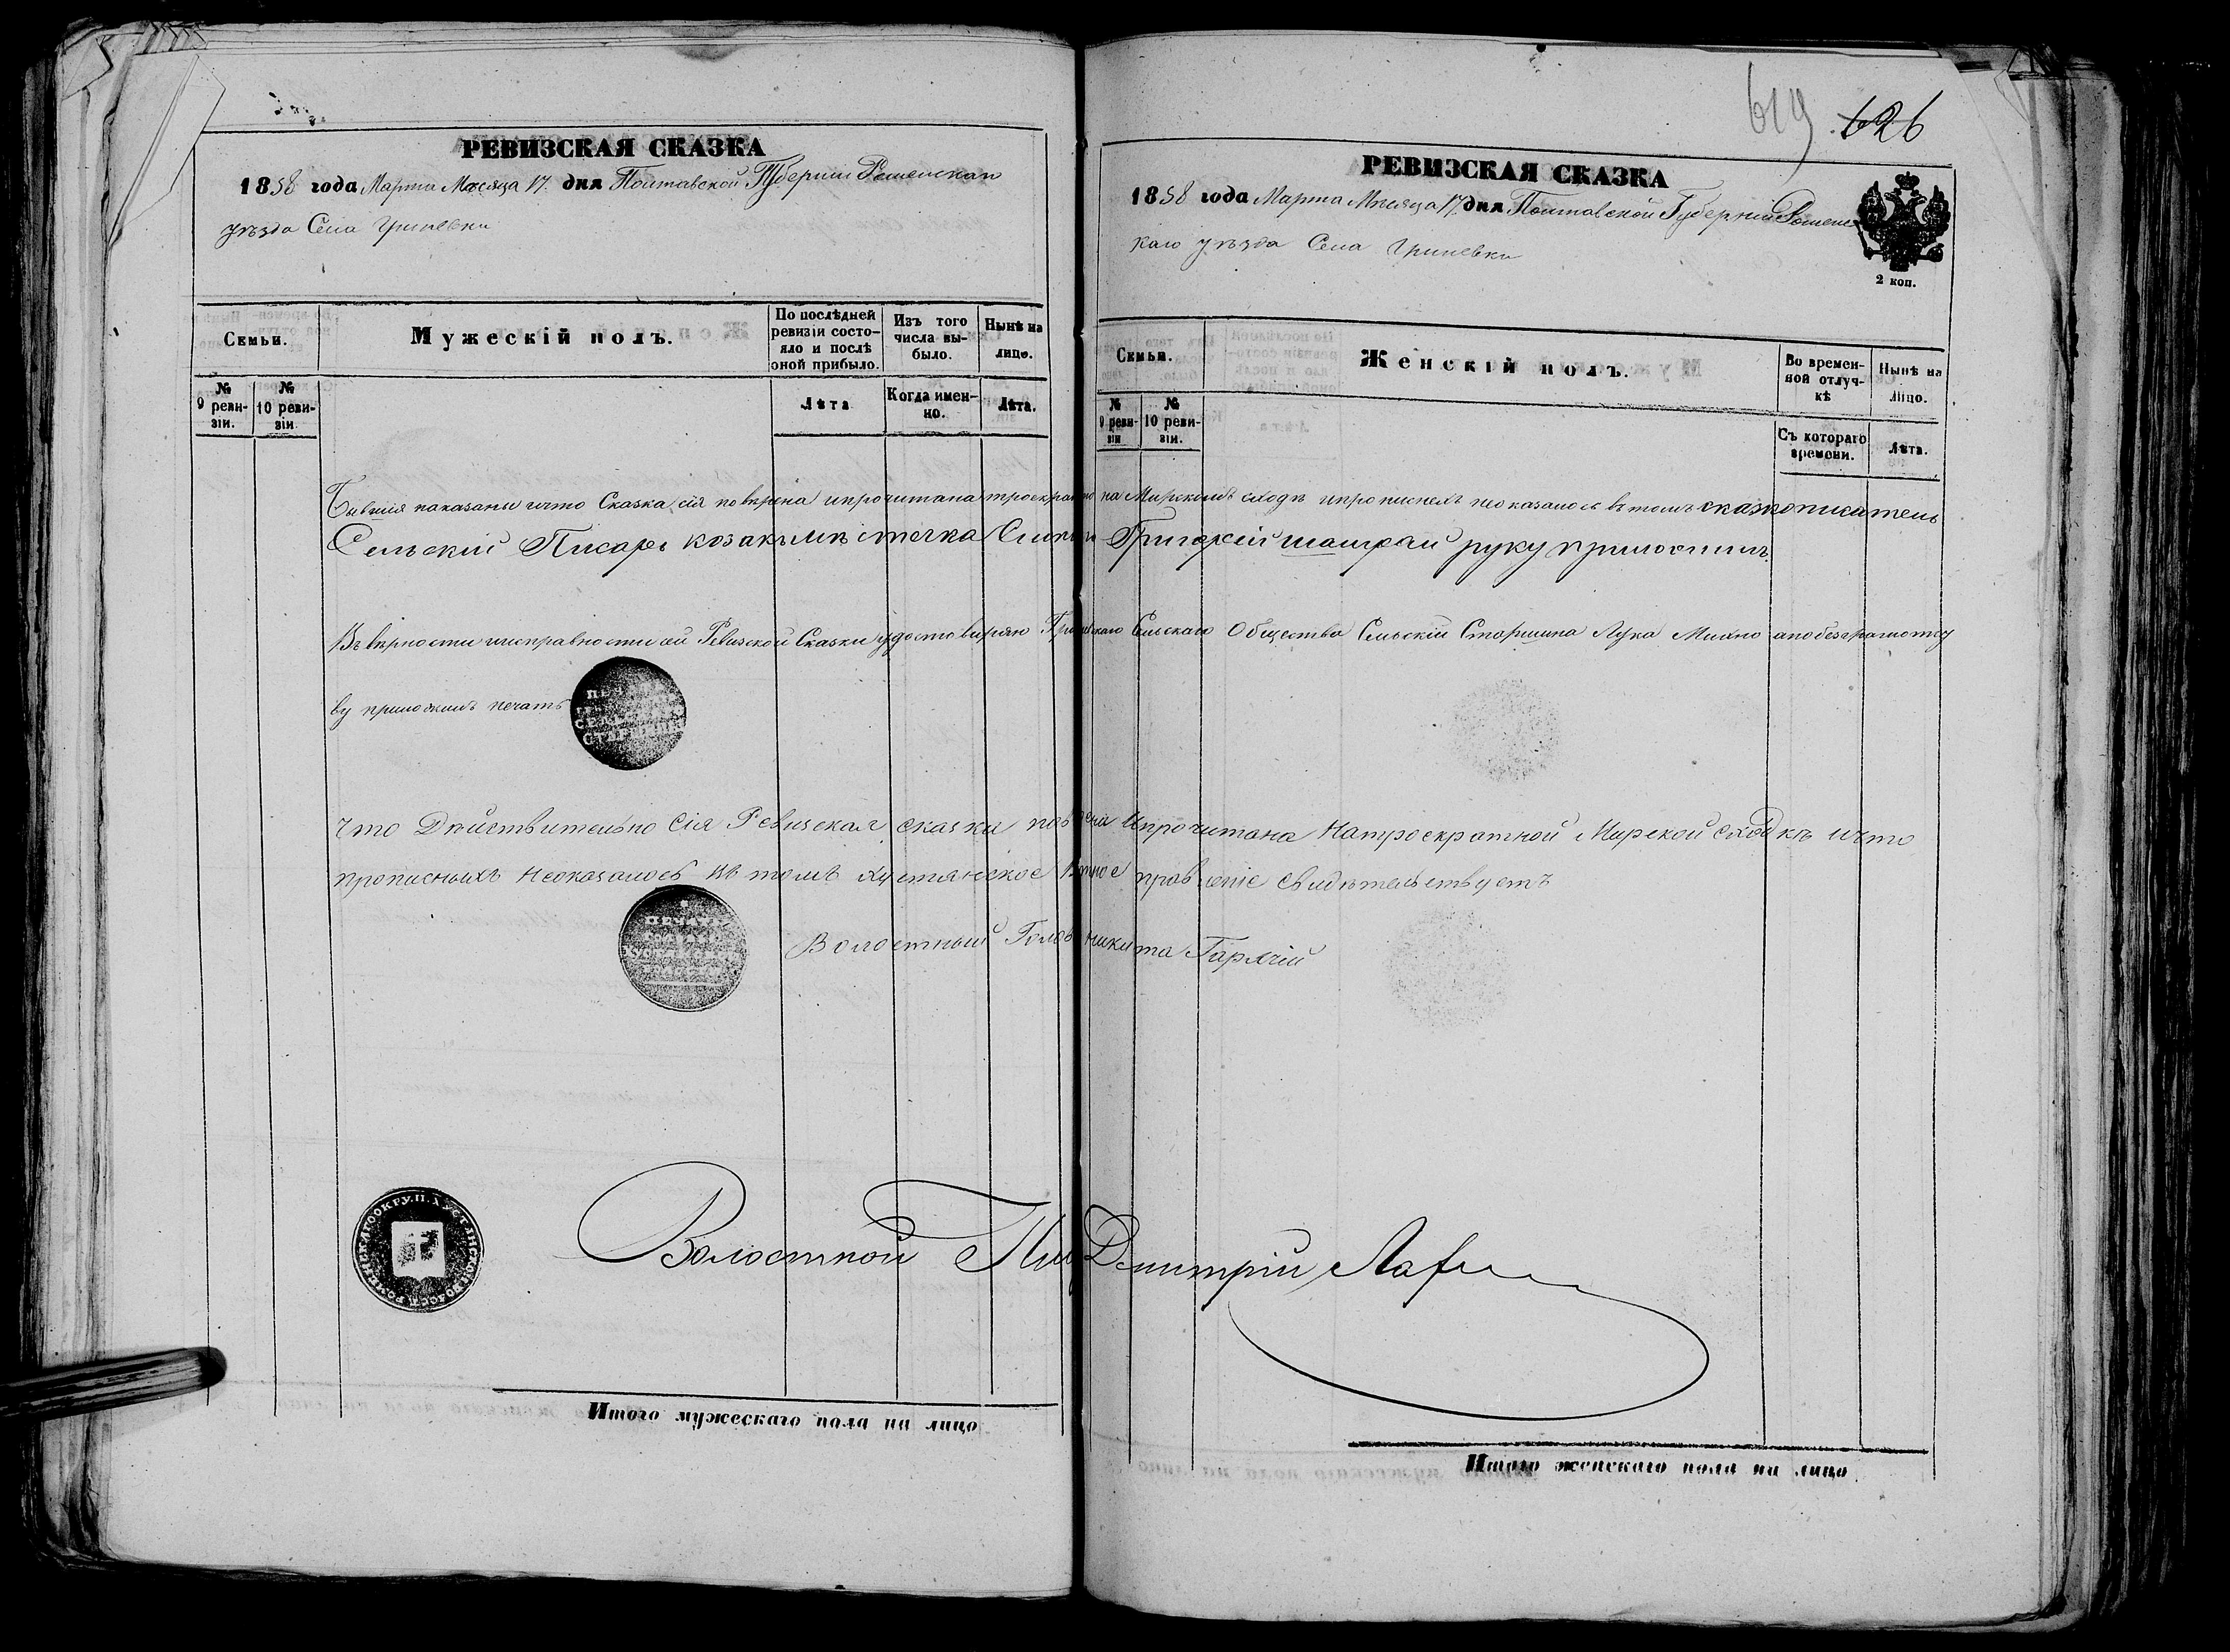 619 626
РЕВИЗСКАЯ СКАЗКА
1858 года Марта Месяца 17. дня Полтавской Губернии Роменскаго
уѣзда Села Гриневки
Семьи.
Мужескій полъ.
По послѣдней ревизіи состояло и послѣ оной прибыло.
Изъ того числа выбыло.
Нынѣ на лицо.
№ 9 ревизіи.
№ 10 ревизіи.
Лѣта
Когда именно.
Лѣта.
РЕВИЗСКАЯ СКАЗКА
1858 года Марта Месяца 17 дня Полтавской Губернии Ромен
каго уѣзда Села Гриневки
2 коп.
Семьи.
Женскій полъ.
Во временной отлучкѣ
Нынѣ на лицо.
№ 9 ревизіи
№ 10 ревизіи.
Съ котораго времени.
Лѣта.
показаны что Сказка сія поверена ипрочитана троекратно на Мирскомъ сходѣ ипрописнехъ неоказалось вътомъ сказкописатель
Сельскій Писарь козакъ мѣстечка Григорій руку приложилъ.
Въ вѣрности иисправности сей Ревизской Сказки удостовѣряю Сельскаго Общества Сельскій Старшина Лука Михно апобезграмотсу
ву приложилъ печать
Что Дѣйствительно Сія Ревизская сказка Ипрочитана Натроекратной Мирской сходкѣ ичто
прописныхъ Неоказалось Въ томъ Хустянское правленіе Свидѣтельствуетъ
Волостный Голова Никита Гарячій
Волостной Дмитрій
Итого мужескаго пола на лицо
Итого женскаго пола на лицо